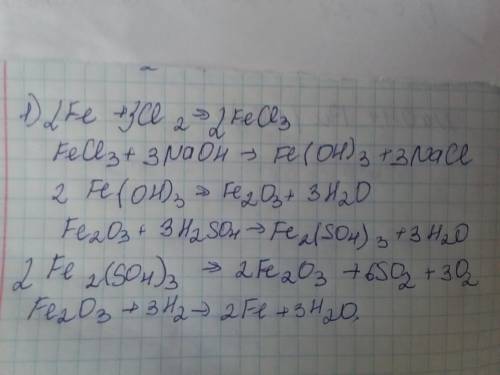 1) 2Fe + 3Cl₂ → 2FeCl₃
FeCl₃ + 3NaOH → Fe(OH)₃ + 3NaCl
2 Fe(OH)₃ → Fe₂O₃ + 3H₂O
Fe₂O₃ + 3H₂SO₄ → Fe₂(SO₄)₃ + 3H₂O
2 Fe₂(SO₄)₃ → 2Fe₂O₃ + 6SO₂ + 3O₂
Fe₂O₃ + 3H₂ → 2Fe + 3H₂O,